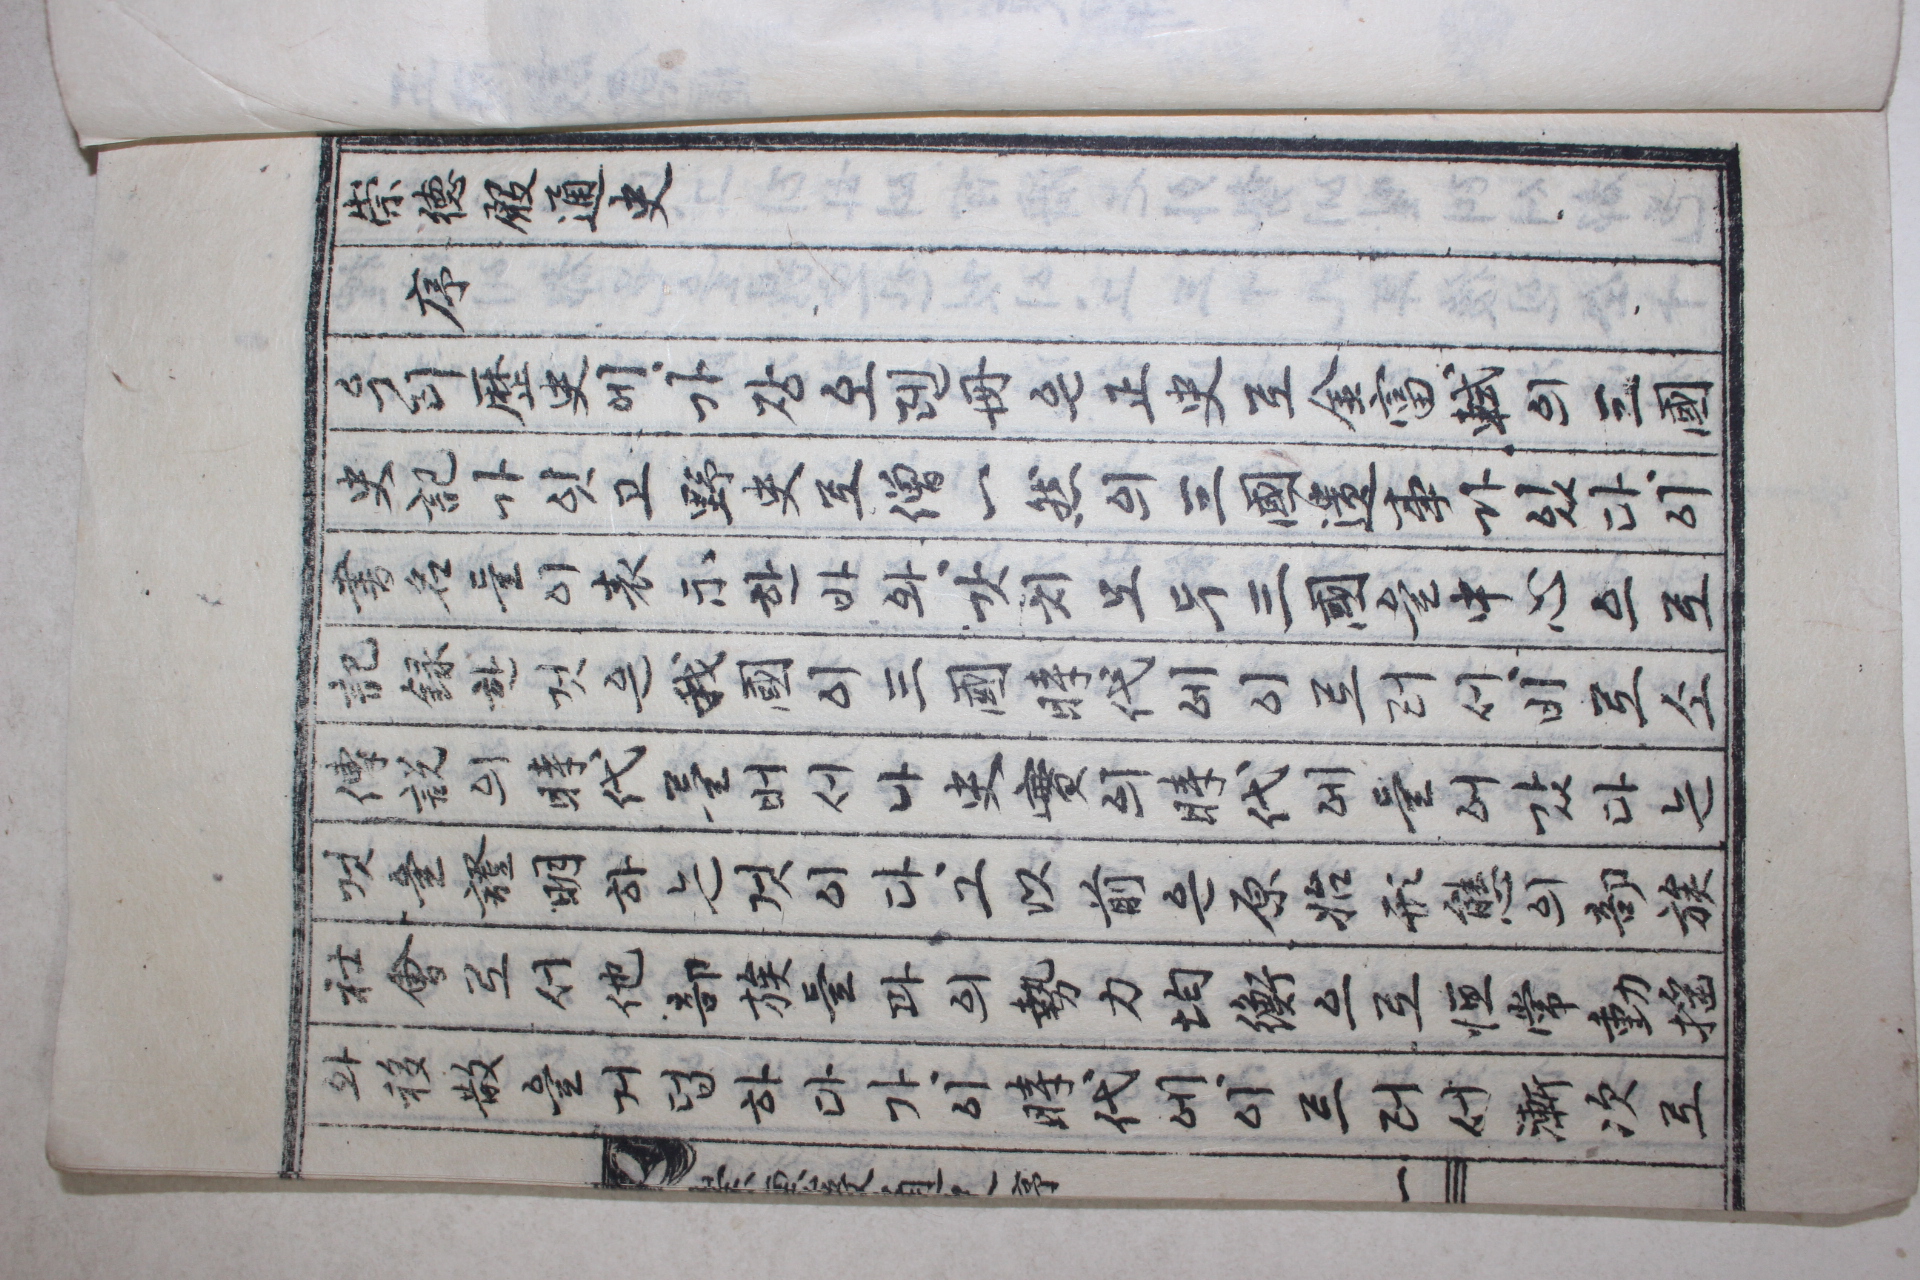 崇德殿通史
序
우리歷史에、가장오랜冊은正史로金富軾의三國
史記가잇고野史로僧一然의三國遺事가있다、이
書名들이表示한바와、갓치모두三國을中心으로
記録한것은我國이三國時代에이르러서、비로소
傳說의時代를버서나史實의時代에들어갔다는
것을證明하는것이다、그以前은原始形態의部族
社會로서他部族들과의勢力均衡으로恒常動搖
와移散을거듭하다가、이時代에、이르러서漸次로
崇德殿通史序
一